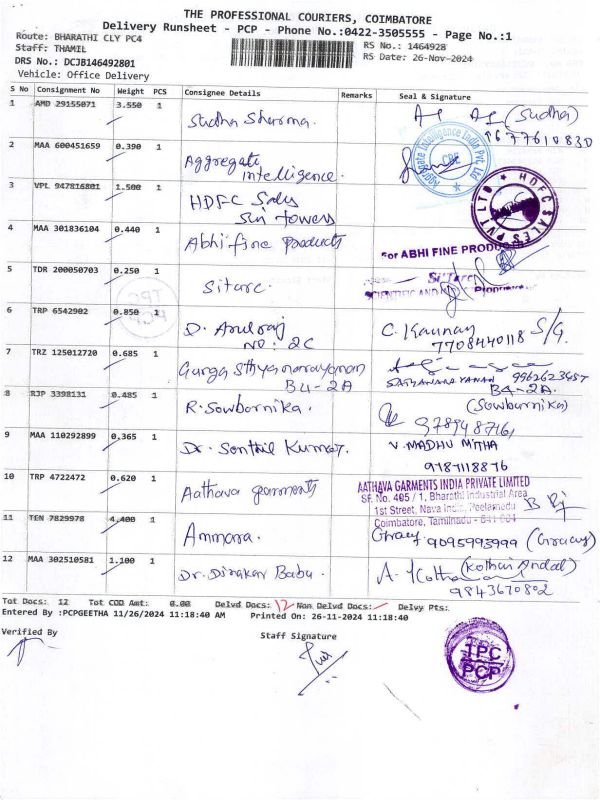 THE PROFESSIONAL COURIERS, COIMBATORE
Delivery Runsheet - PCP - Phone No.:0422-3505555 - Page No.:1
Route: BHARATHI CLY PC4
RS No.: 1464928
Staff: THAMIL
RS Date: 26-Nov-2024
DRS No.: DCJB146492801
Vehicle: Office Delivery
S No Consignment No Weight PCS Consignee Details Remarks Seal & Signature
1 AMD 29155071 3.550 1 Sudha Sharma. (Sudha)
9677610830
2 MAA 600451659 0.390 1 Aggregate
intelligence.
Aggregate Intelligence India Pvt. Ltd
CBE
3 VPL 947816801 1.500 1 HDFC Sales
Sri towers
HDFC SALES PVT LTD
4 MAA 301836104 0.440 1 Abhi fine products
For ABHI FINE PRODUCTS
5 TDR 200050703 0.250 1 Sitarc.
SCIENTIFIC AND
TPC
PCP
6 TRP 6542902 0.850 1 D. Arulraj
No: 2C
7708440118 S/G.
7 TRZ 125012720 0.685 1 Sthyanarayanan
B4-2A
SATHYANARAYANAN 9962623457
B4-2A.
8 RJP 3398131 0.485 1 R. Sowbarnika.
(Sowbarnika)
9 MAA 110292899 0.365 1 Dr. Senthil Kumar.
V. MADHU MITHA
9787118876
10 TRP 4722472 0.620 1 Aathava garments
AATHAVA GARMENTS INDIA PRIVATE LIMITED
SF. No. 405 / 1, Bharathi Industrial Area
1st Street, Nava India, Peelamedu
Coimbatore, Tamilnadu - 641 004
11 TEN 7829978 4.400 1 Ammara.
9095993999
12 MAA 302510581 1.100 1 Dr. Dinakar Babu.
(Kothai Andal)
9843670802
Tot Docs: 12 Tot COD Amt: 0.00 Delvd Docs: 12 Non Delvd Docs: Delvy Pts:
Entered By :PCPGEETHA 11/26/2024 11:18:40 AM Printed On: 26-11-2024 11:18:40
Verified By
Staff Signature
TPC
PCP